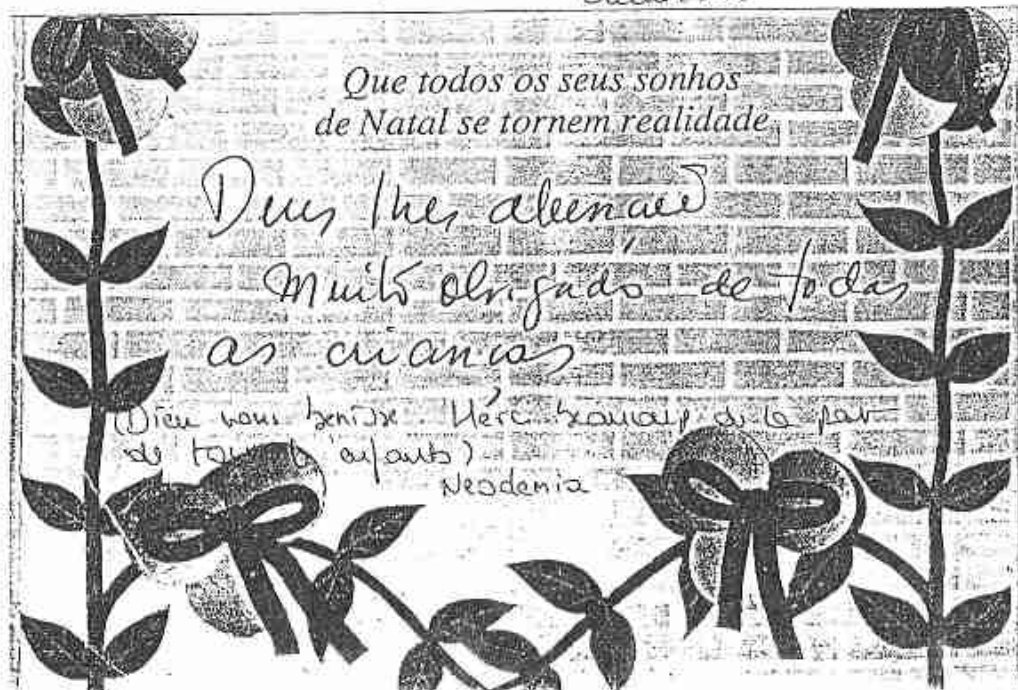 Que todos os seus sonhos
de Natal se tornem realidade
Deus lhes abençoe
Muito obrigado de todas
as crianças
(Dieu vous bénisse. Merci beaucoup de la part
de tous enfants)
Neodemia